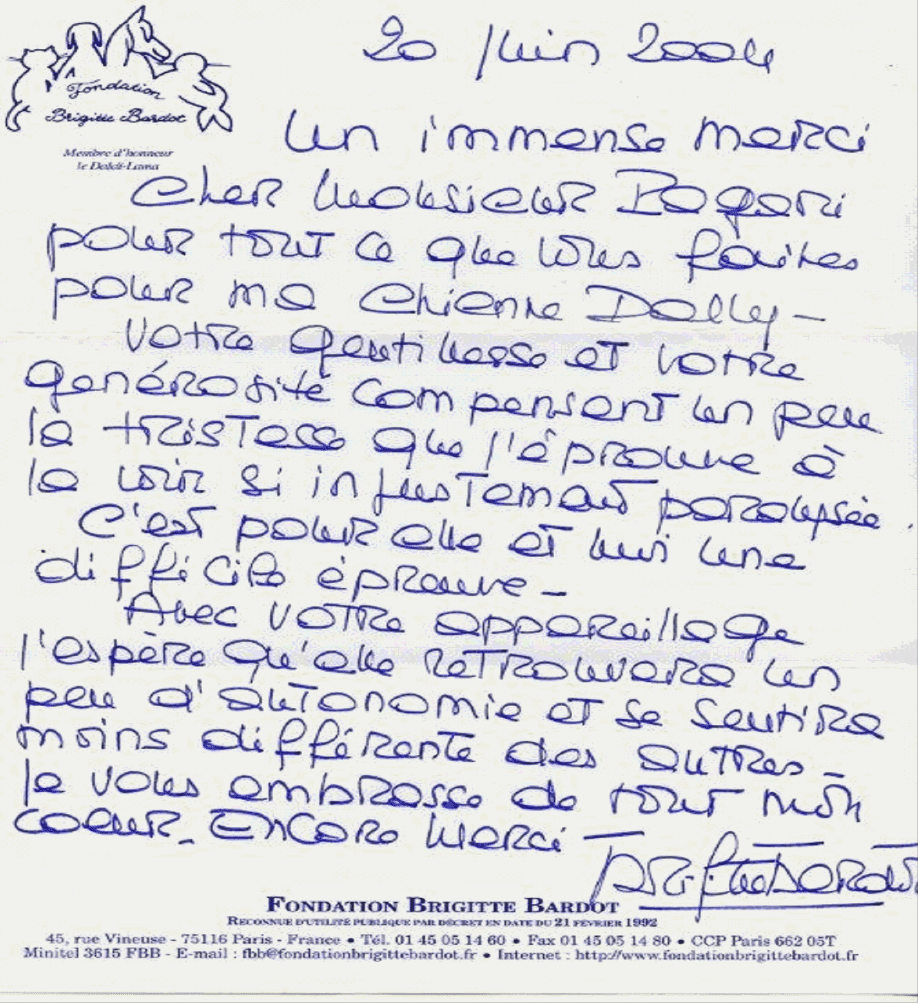 20 Juin 2004
Fondation
Brigitte Bardot
Membre d'honneur
le Dalaï-Lama
Un immense merci
Cher Monsieur Bogari
pour tout ce que vous faites
pour ma chienne Dolly -
Votre gentillesse et votre
générosité compensent un peu
la tristesse que j'éprouve à
la voir si injustement paralysée.
C'est pour elle et moi une
difficile épreuve -
Avec votre appareillage
j'espère qu'elle retrouvera un
peu d'autonomie et se sentira
moins différente des autres -
Je vous embrasse de tout mon
coeur. Encore Merci
Brigitte Bardot
FONDATION BRIGITTE BARDOT
RECONNUE D'UTILITÉ PUBLIQUE PAR DÉCRET EN DATE DU 21 FÉVRIER 1992
45, rue Vineuse - 75116 Paris - France • Tél. 01 45 05 14 60 • Fax 01 45 05 14 80 • CCP Paris 662 05T
Minitel 3615 FBB - E-mail : fbb@fondationbrigittebardot.fr • Internet : http://www.fondationbrigittebardot.fr